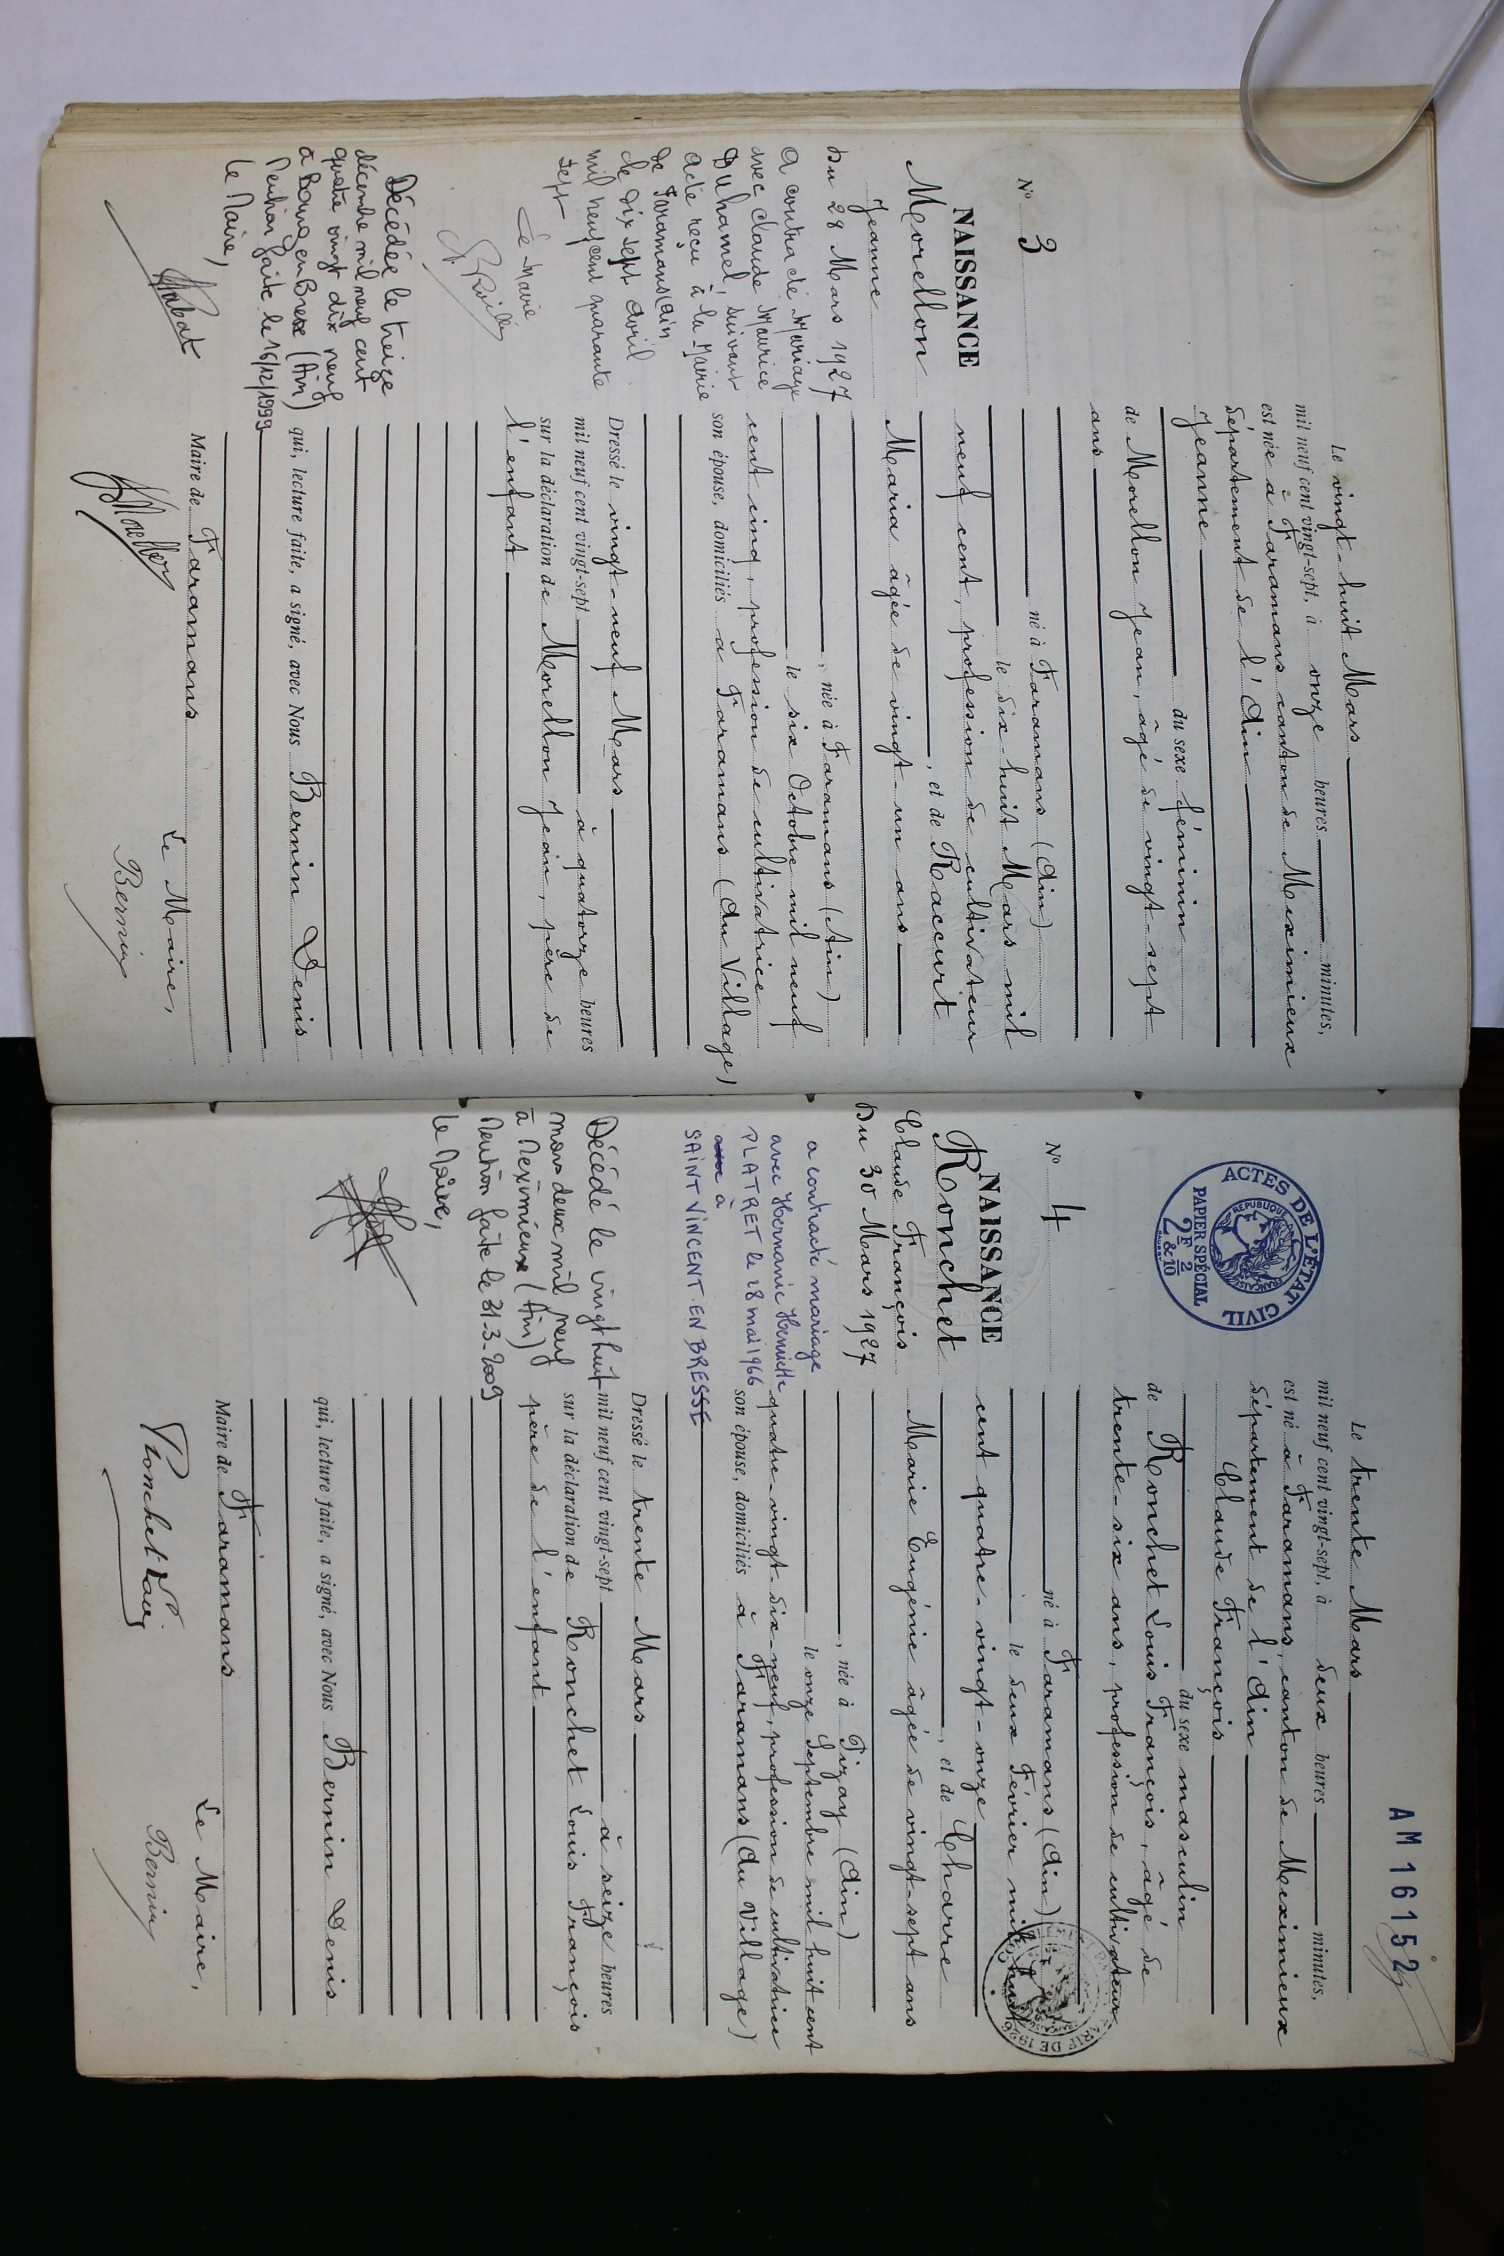 N° 3
NAISSANCE
Morellon
Jeanne
Du 28 Mars 1927
A contracté Mariage
avec Claude Maurice
Duhamel, suivant
acte reçu à la Mairie
de Faramans (Ain
le Dix sept avril
mil neuf cent quarante
sept
Le Maire
Décédée le treize
décembre mil neuf cent
quatre vingt dix neuf
à Bourg en Bresse (Ain)
Mention faite le 16/12/1999
le Maire,
Le vingt-huit Mars
mil neuf cent vingt-sept, à onze heures minutes,
est née à Faramans canton de Meximieux
département de l'Ain
Jeanne
du sexe féminin
de Morellon Jean, âgé de vingt-sept
ans
né à Faramans (Ain)
le dix-huit Mars mil
neuf cent, profession de cultivateur
, et de Raccurt
Maria âgée de vingt-un ans
, née à Faramans (Ain)
le six Octobre mil neuf
cent cinq, profession de cultivatrice
son épouse, domiciliés à Faramans (Au Village)
Dressé le vingt-neuf Mars
mil neuf cent vingt-sept à quatorze heures
sur la déclaration de Morellon Jean, père de
l'enfant
qui, lecture faite, a signé, avec Nous Bernin Denis
Maire de Faramans
Le Maire,
Bernin
AM16152
ACTES DE L'ÉTAT CIVIL
RÉPUBLIQUE FRANÇAISE
PAPIER SPÉCIAL
2F 2/10
2 &10
N° 4
NAISSANCE
Ronchet
Claude François
Du 30 Mars 1927
a contracté mariage
avec Hermanie Henriette
PLATRET le 28 mai 1966
à
SAINT VINCENT. EN BRESSE
Décédé le vingt huit
mars deux mil neuf
à Meximieux (Ain)
Mention faite le 31-3-2009
le Maire,
Le trente Mars
mil neuf cent vingt-sept, à deux heures minutes,
est né à Faramans, canton de Meximieux
département de l'Ain
Claude François
du sexe masculin
de Ronchet Louis François, âgé de
trente-six ans, profession de cultivateur
né à Faramans (Ain)
le deux Février mil huit
cent quatre-vingt-onze
, et de Charre
Marie Eugénie âgée de vingt-sept ans
, née à Pizay (Ain)
le onze Septembre mil huit cent
quatre-vingt-dix-neuf, profession de cultivatrice
son épouse, domiciliés à Faramans (Au Village)
Dressé le trente Mars
mil neuf cent vingt-sept à seize heures
sur la déclaration de Ronchet Louis François
père de l'enfant
qui, lecture faite, a signé, avec Nous Bernin Denis
Maire de Faramans
Le Maire,
Ronchet
Bernin
TARIF DE 1926